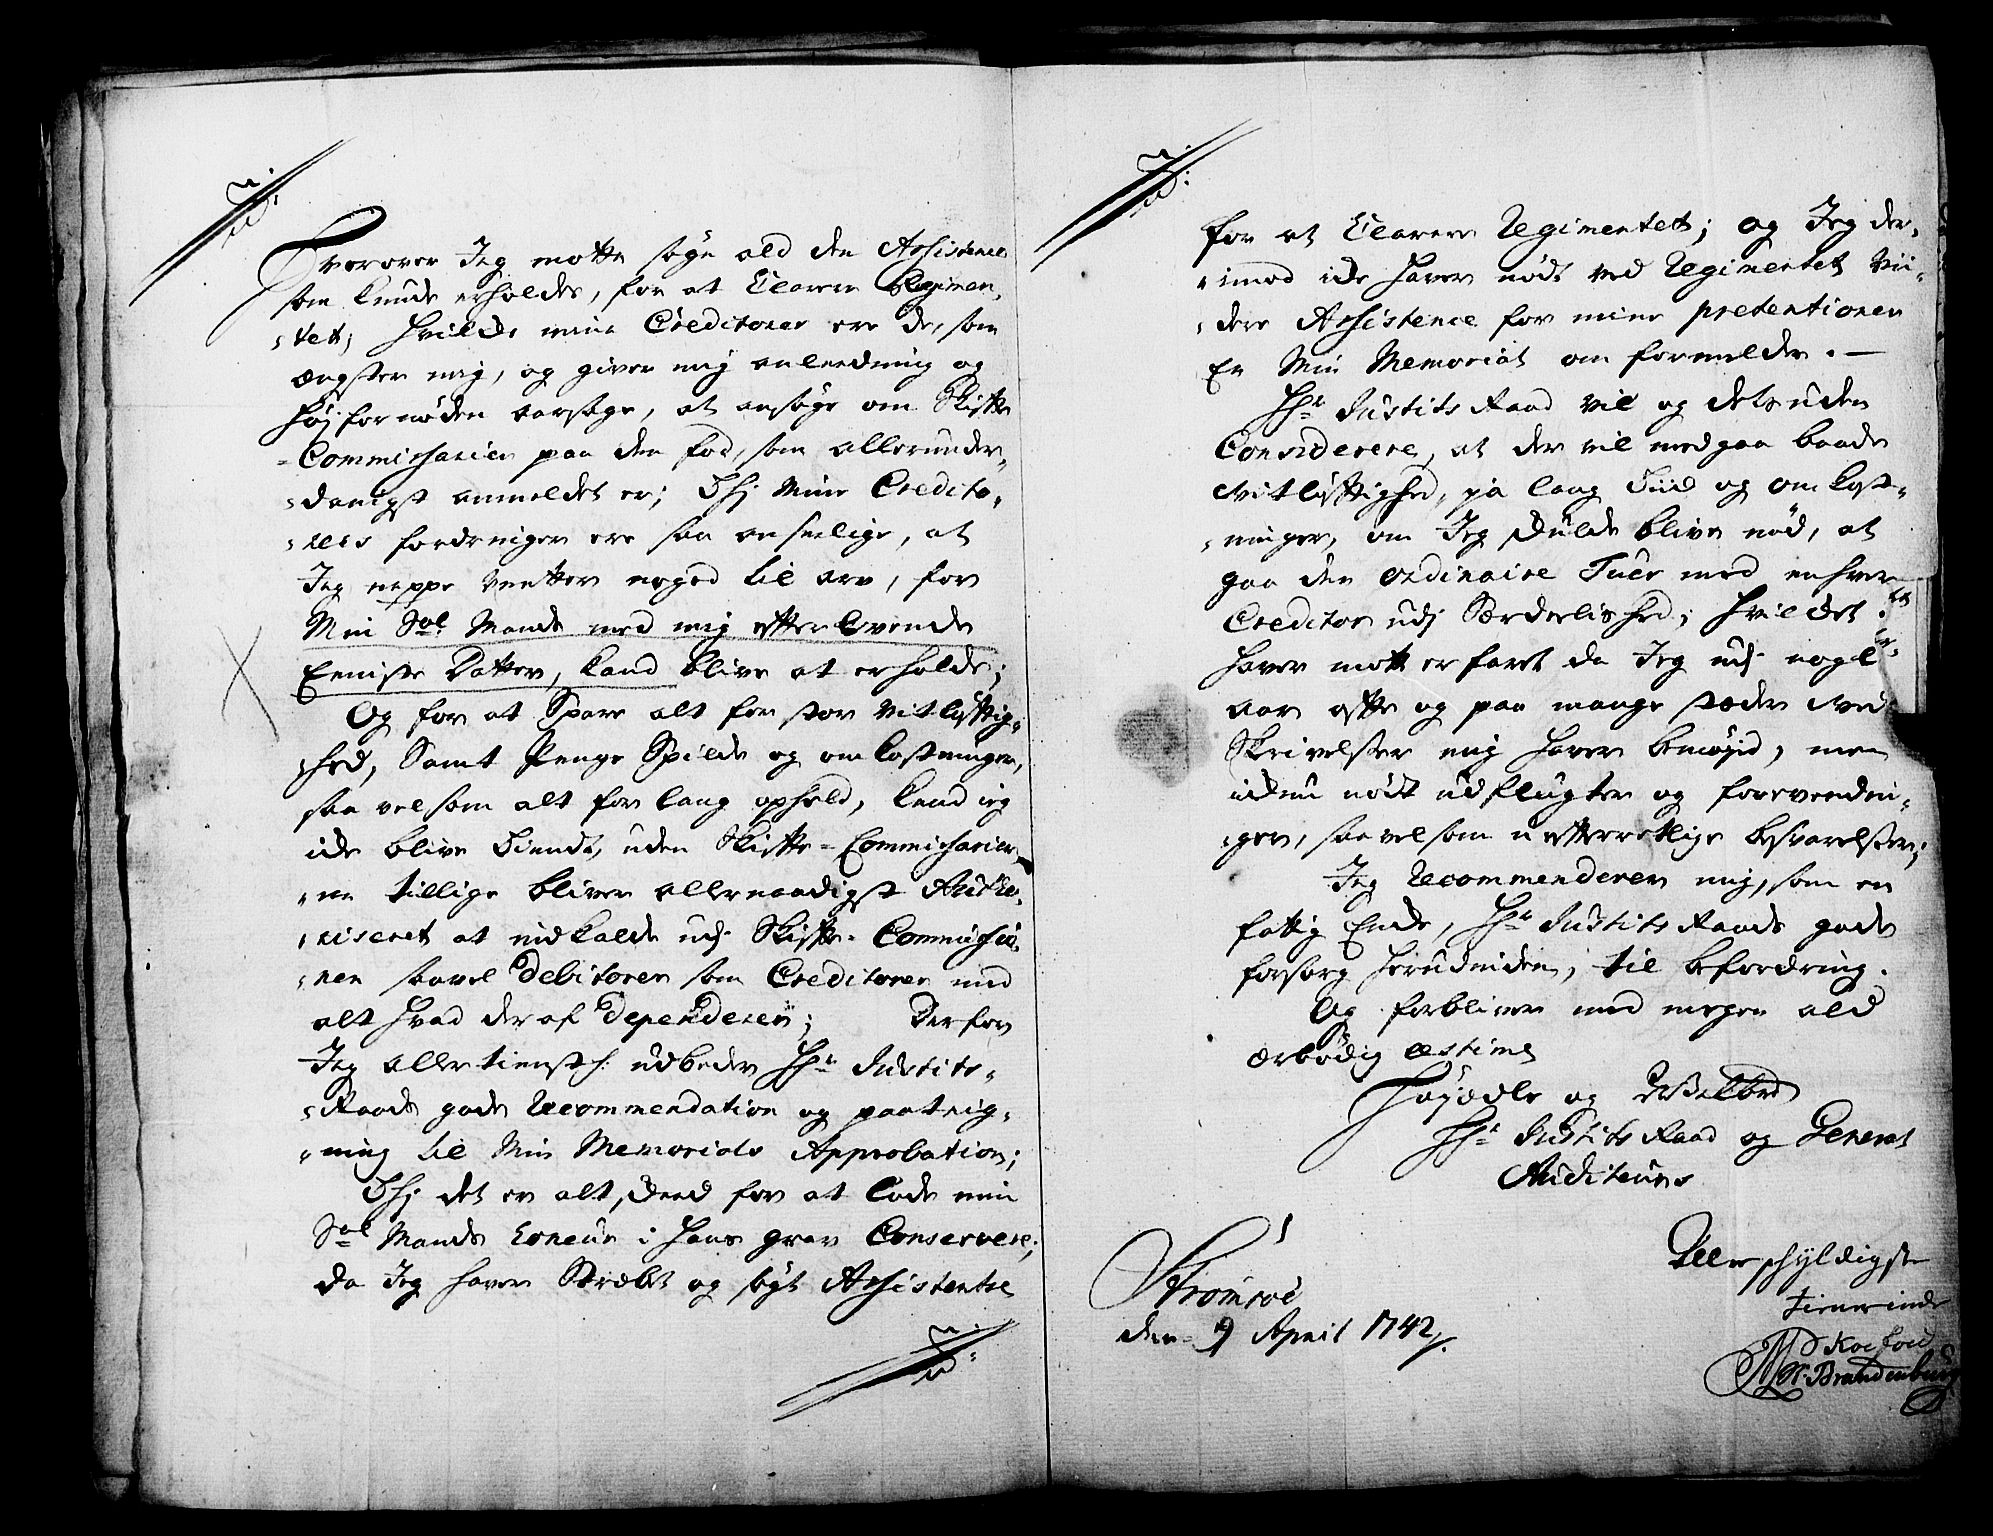 Hvorover Jeg motte søge ald den Assistence
som kunde erholdes, for at Clarere Regimen¬
tet; hvilcke mine Creditorer ere de, som
ængster mig, og giver mig anleedning og
høj fornøden aarsage, at ansøge om Skifte
Commissarier paa den fod, som allerunder¬
danigst anmeldet er; Thj mine Credito¬
rers fordringer ere saa anseelige, at
Jeg neppe venter noged til arv, for
Min Sal: Mands med mig efterlevende
Eeniste Datter, kand blive at erholde;
Og for at Spare alt for stor Vitløftig¬
hed, Samt Penge Spilde og omkostninger,
saa velsom alt for lang ophold, kand jeg
icke blive tient, uden Skifte-Commissarier¬
ne tillige bliver allernaadigst Autho¬
riseret at indkalde udj Skifte-Commissio¬
nen saavel Debitorer som Creditorer med
alt hvad der af Dependerer; Derfor
Jeg allertienstl: udbeder Hr: Justits¬
Raads gode Recommendation og paateig¬
ning til Min Memorials Approbation;
Thj det er alt, skeed for at lade min
Sal Mands honeur i hans grav Conservere;
da Jeg haver Stræbt og søgt Assistentse
for at Clarere Regimentet; og Jeg der¬
imod icke haver nødt ved Regimentet vii¬
dere Assistence for mine prætentioner
En Min Memorial om formelder. —
Hr: Justits Raad vil og desuden
Considerere, at der vil medgaa baade
Vitløftighed, ja lang Tiid og omkost¬
ninger, om Jeg skulde blive nød, at
gaa den ordinaire Tuer med enhver
Creditor udj Særdelished; hvilcket
haver mott erfaret da Jeg udj nogle
aar efter og paa mange stæder ved
Skrivelser mig haver bemøjed, men
ickun nødt udflugter og forevending¬
ger, saavelsom uefterretlige besvarelser;
Jeg Recommenderer mig, som en
fattig Encke, Hr: Justits Raads gode
forsorg herudinden, til befordring.
Og forbliver med megen ald
ærbødig æstime
Høyædle og Velbr
Hr: Justits Raad og General
Auditeurs
Strømsøe
den 9 April 1742/.
Allerschyldigste
tienerinde
Brandenburg